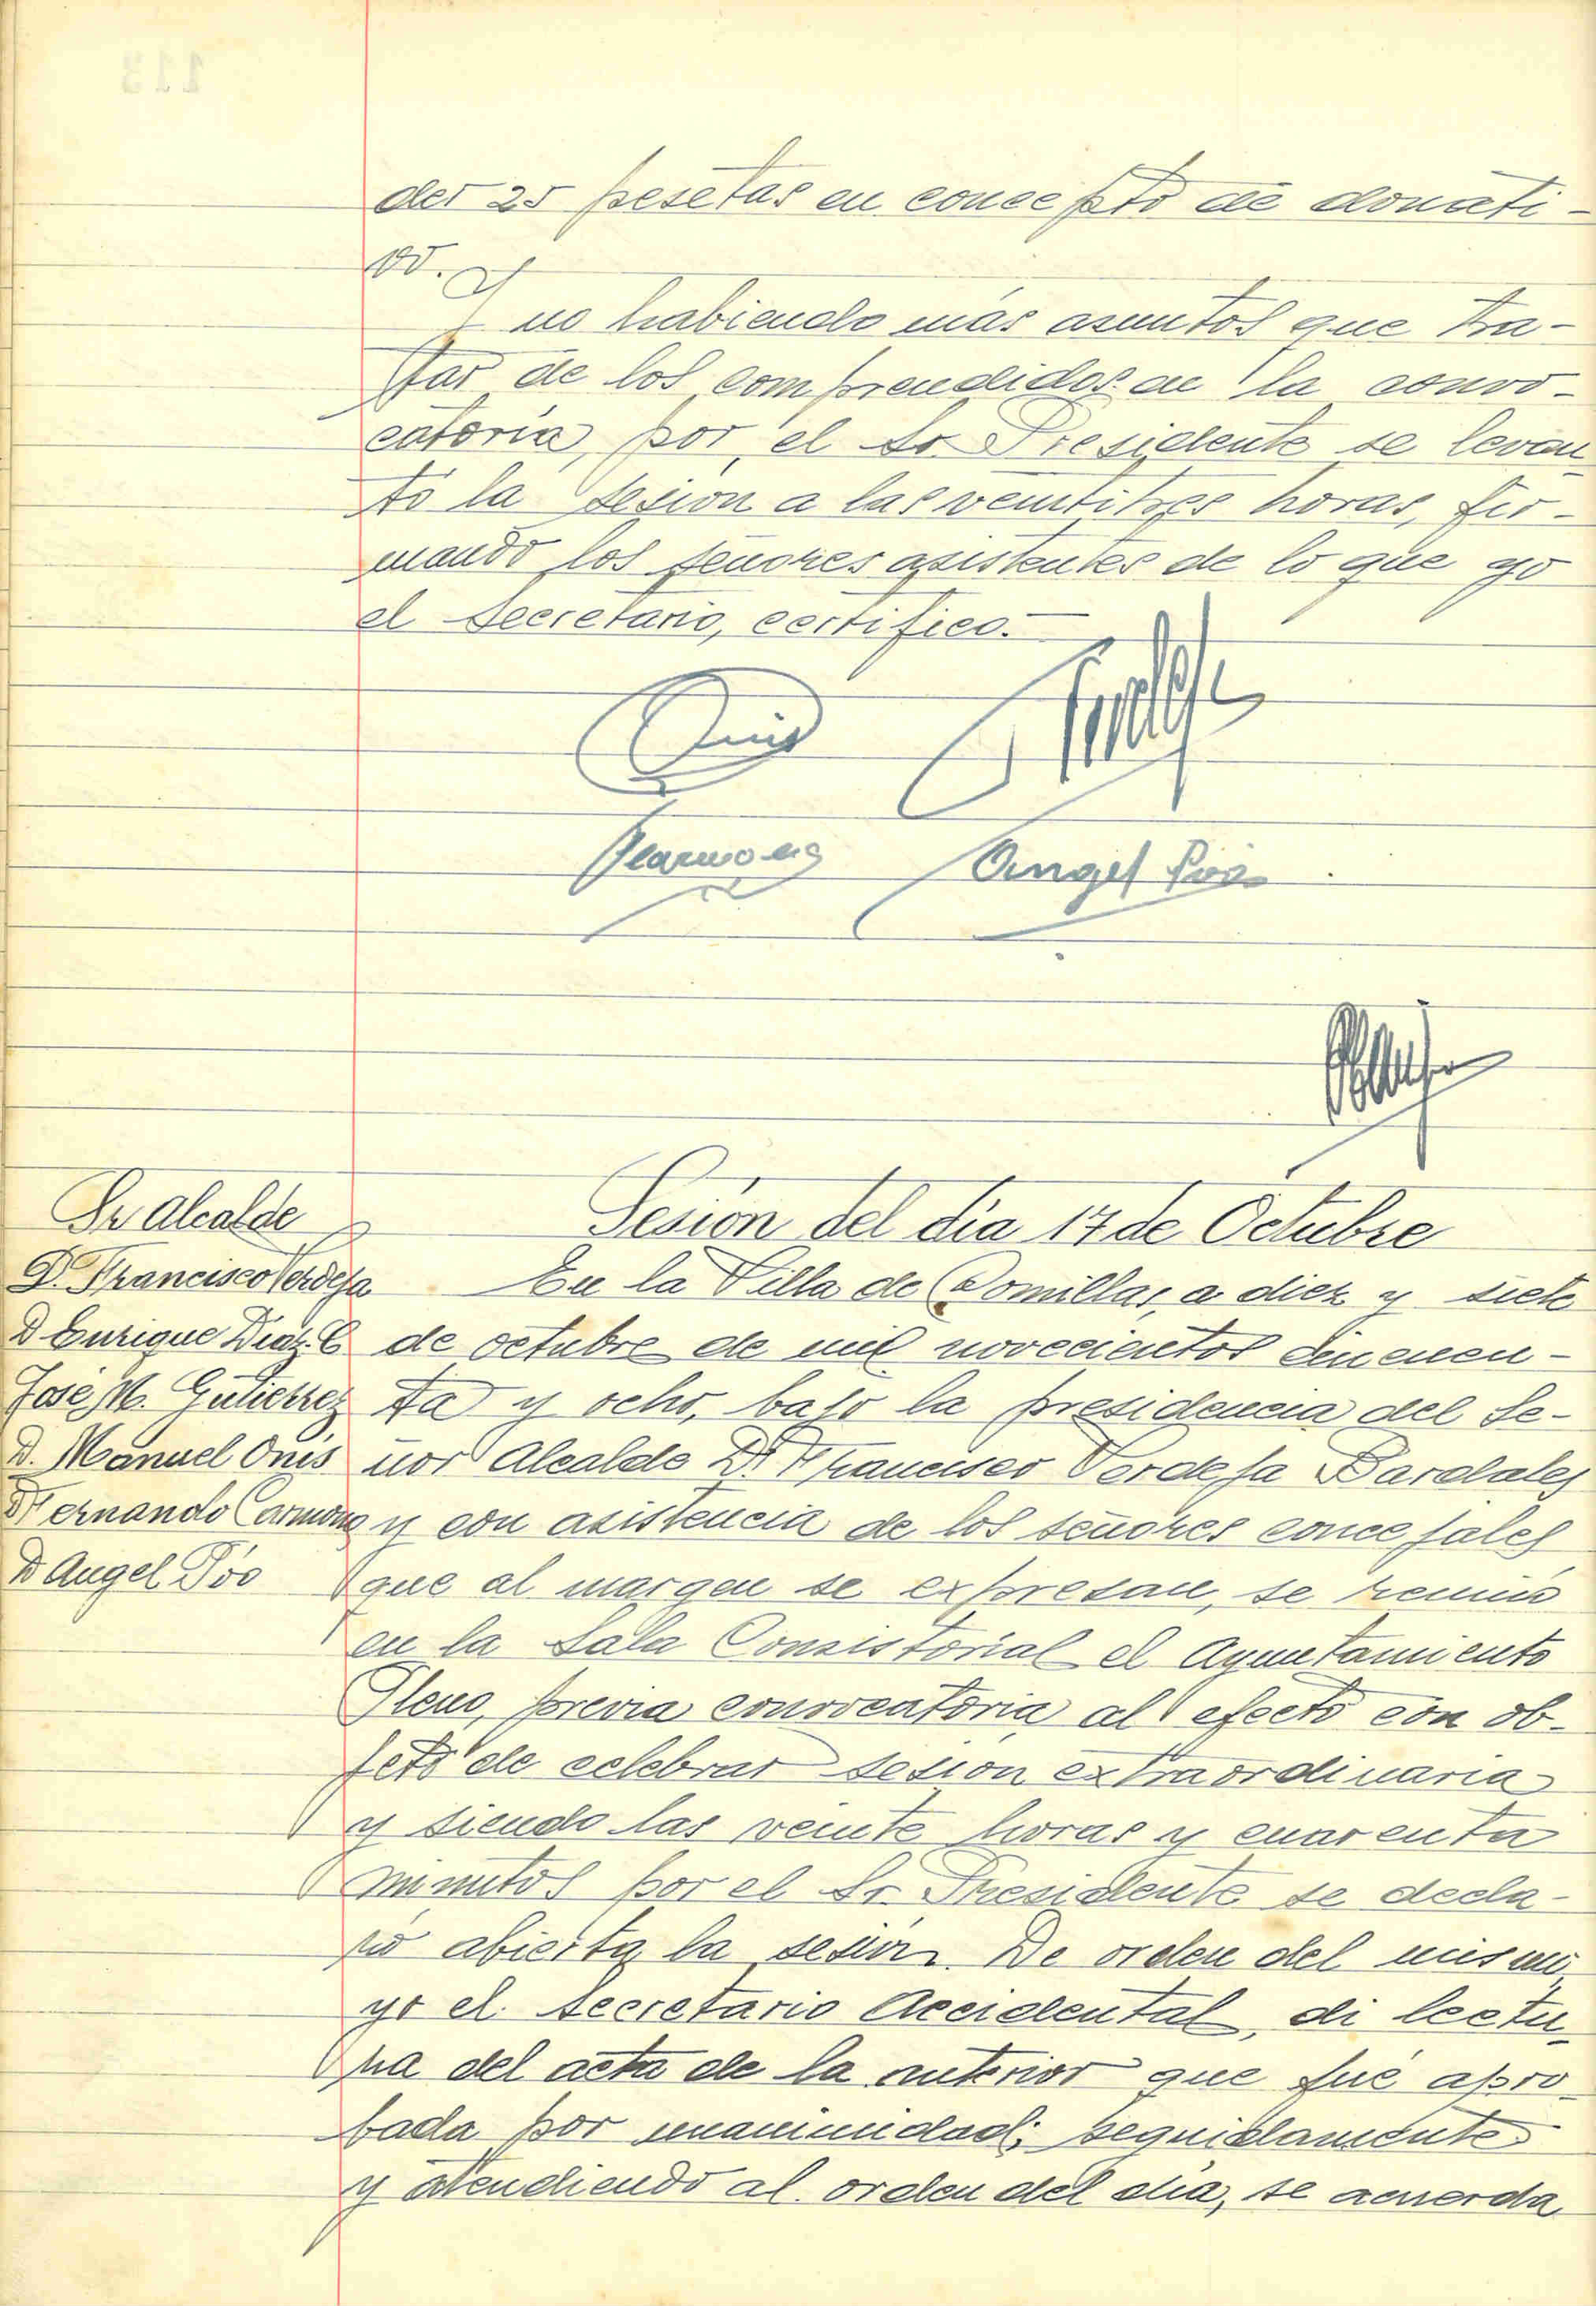 der 25 pesetas en concepto de donati-
vo.
Y no habiendo más asuntos que tra-
tar de los comprendidos en la convo-
catoria, por el Sr. Presidente se levan
tó la sesión a las veintitres horas, fir-
mando los señores asistentes de lo que yo
el Secretario, certifico.-
Onis
Carmona Angel Póo
Sr Alcalde
D. Francisco Verdeja
D Enrique Diaz C
José M. Gutierrez
D. Manuel Onis
D Fernando Carmona
D Angel Póo
Sesión del día 17 de Octubre
En la Villa de Comillas, a diez y siete
de octubre de mil novecientos cincuen-
ta y ocho, bajo la presidencia del Se-
ñor Alcalde D. Francisco Verdeja Bardales
y con asistencia de los señores concejales
que al margen se expresan, se reunió
en la Sala Consistorial el Ayuntamiento
Pleno, previa convocatoria al efecto con ob-
jeto de celebrar sesión extraordinaria
y siendo las veinte horas y cuarenta
minutos por el Sr. Presidente se decla-
ró abierta la sesión. De orden del mismo
yo el Secretario Accidental, di lectu-
ra del acta de la anterior que fué apro
bada por unanimidad; seguidamente
y atendiendo al orden del día, se acuerda